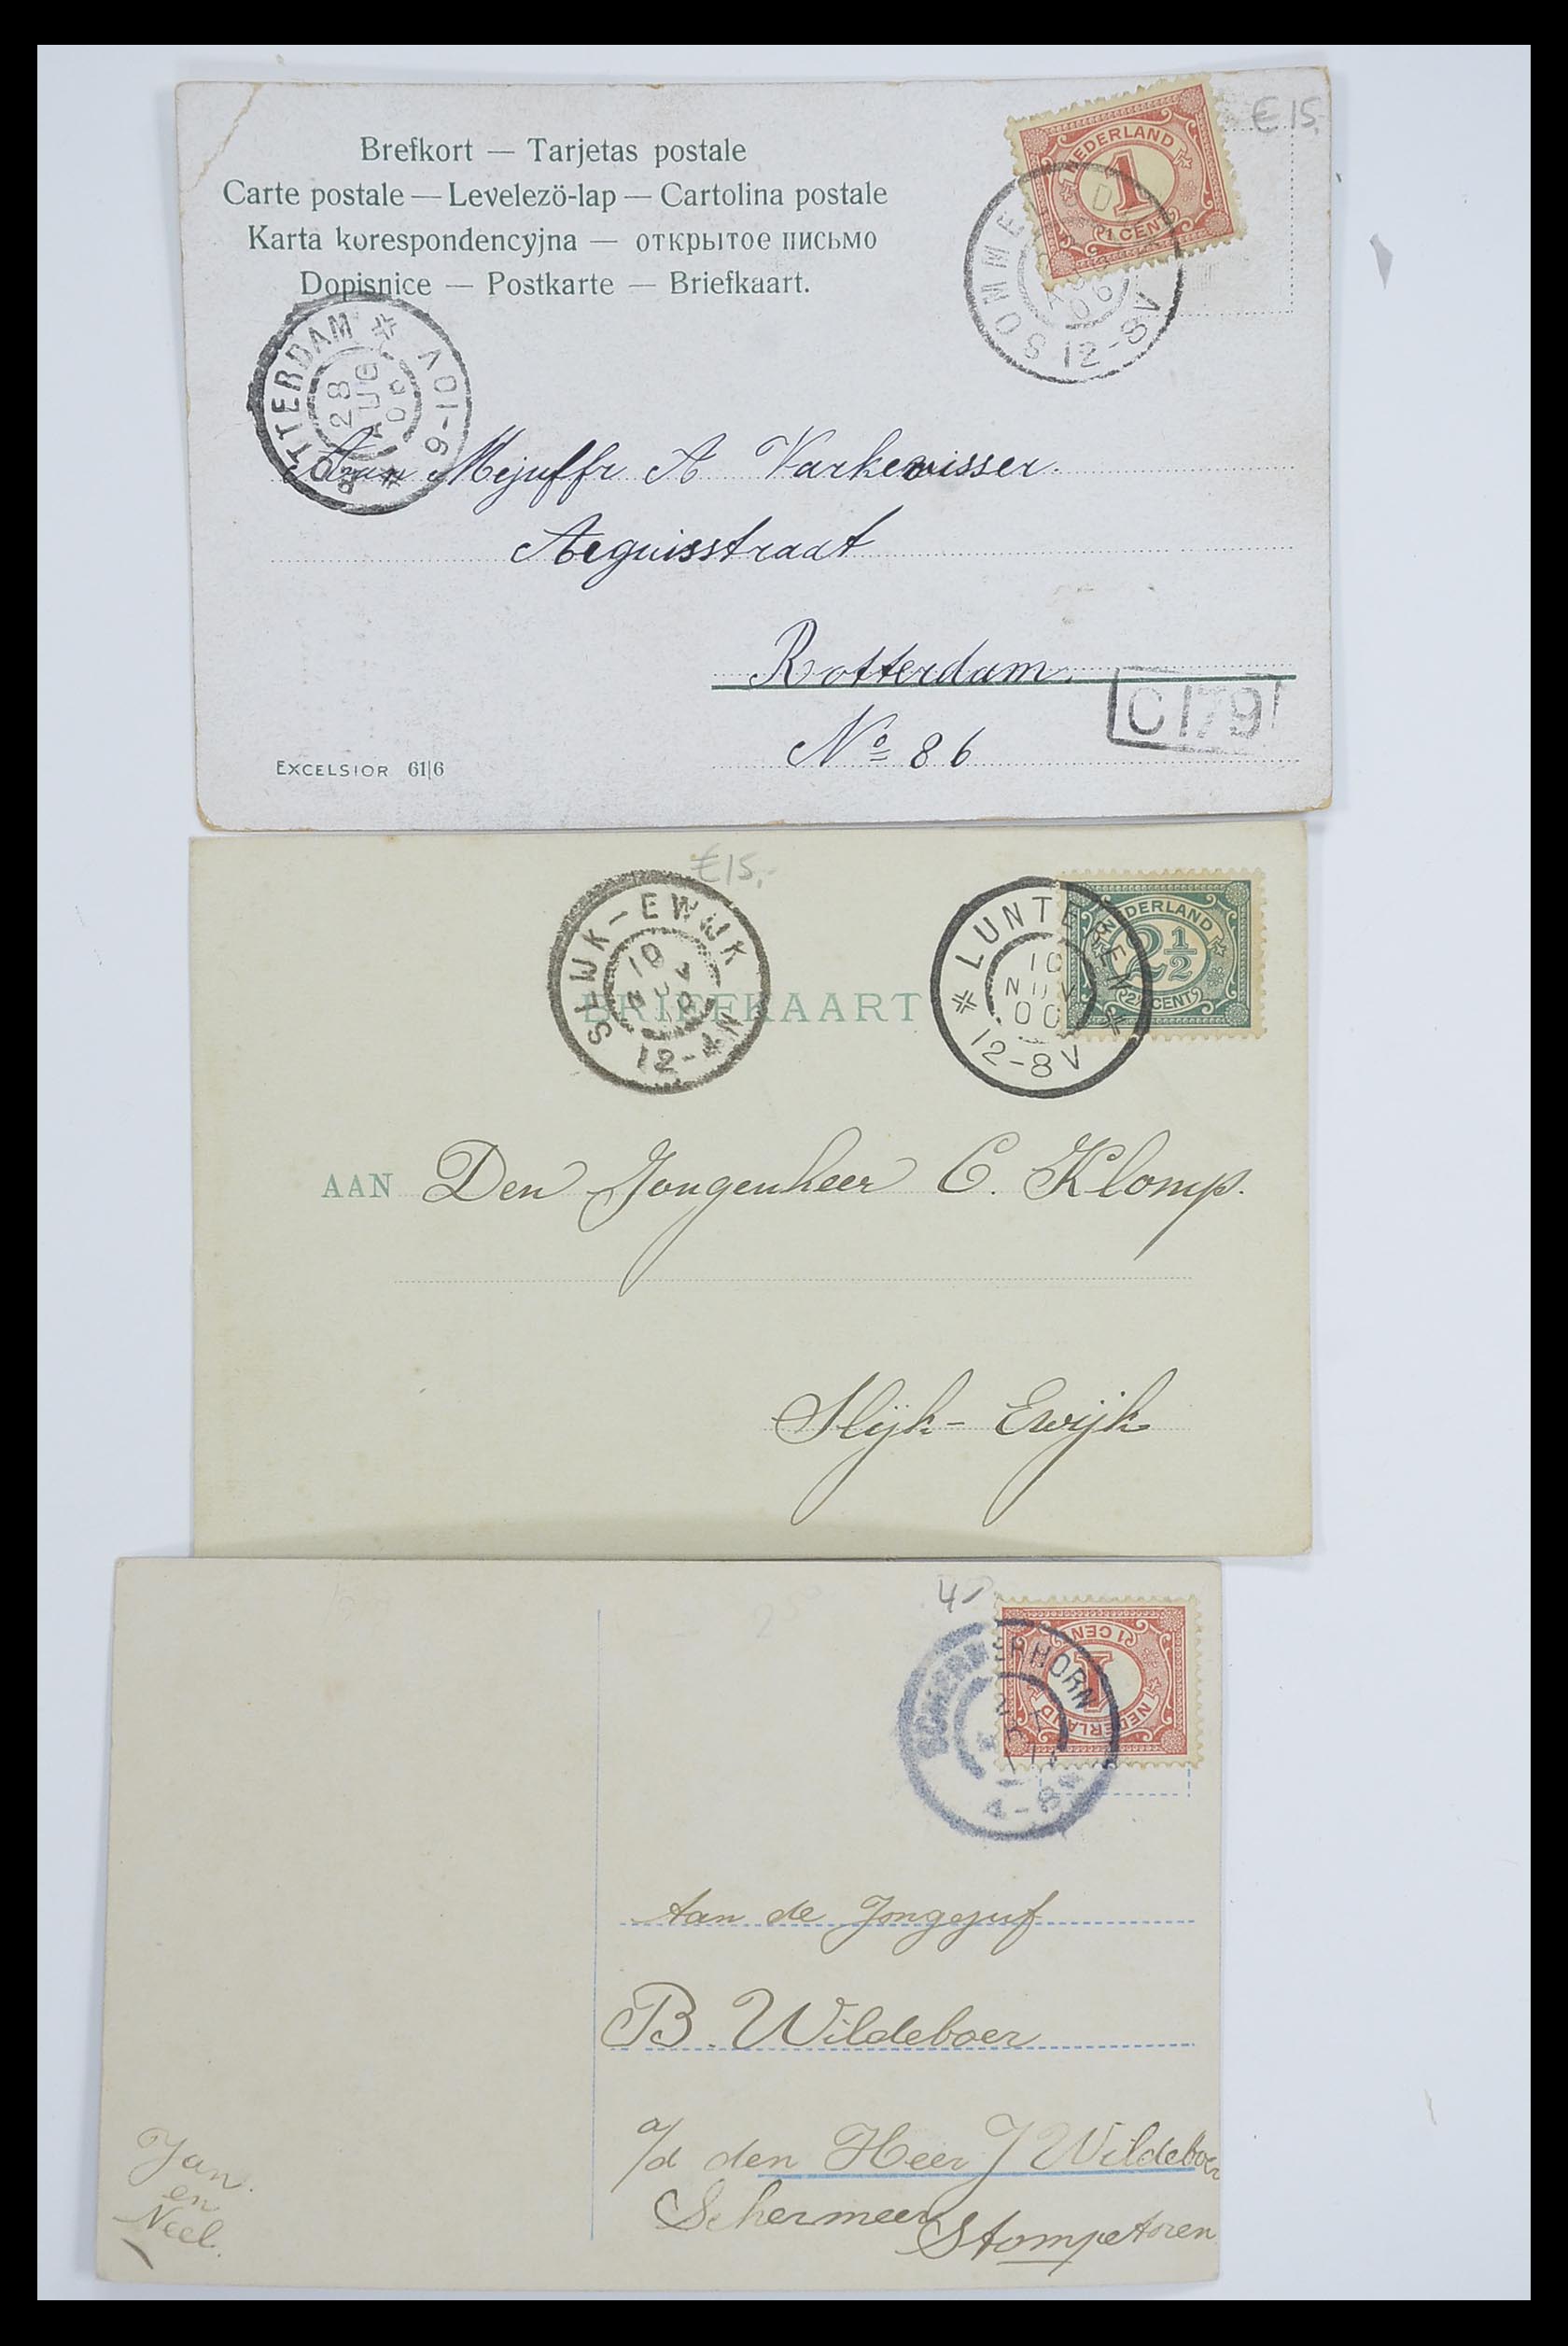 Brefkort — Tarjetas postale
Carte postale — Levelezö-lap — Cartolina postale
Karta korespondencyjna — открытое письмо
Dopisnice — Postkarte — Briefkaart.
€ 15,-
NEDERLAND
1
1 CENT
SOMME
12-8V
ROTTERDAM
28
AUG
06
9-10V
Aan Mejuffr A Varkevisser.
Aeguisstraat
Rotterdam.
No 86
C179
EXCELSIOR 61|6
€15,-
SLIJK-EWIJK
10
NOV
00
12-4N
LUNTEREN
10
NOV
00
12-8V
NEDERLAND
2½
2½ CENT
BRIEFKAART
AAN Den Jongenheer C. Klomp.
Slijk-Ewijk
4,-
SCHERMERHORN
4-8V
1 CENT
1
NEDERLAND
Aan de Jongejuf
B. Wildeboer
a/d den Heer J Wildeboer
Schermeer
Stompetoren
Jan.
en
Neel.